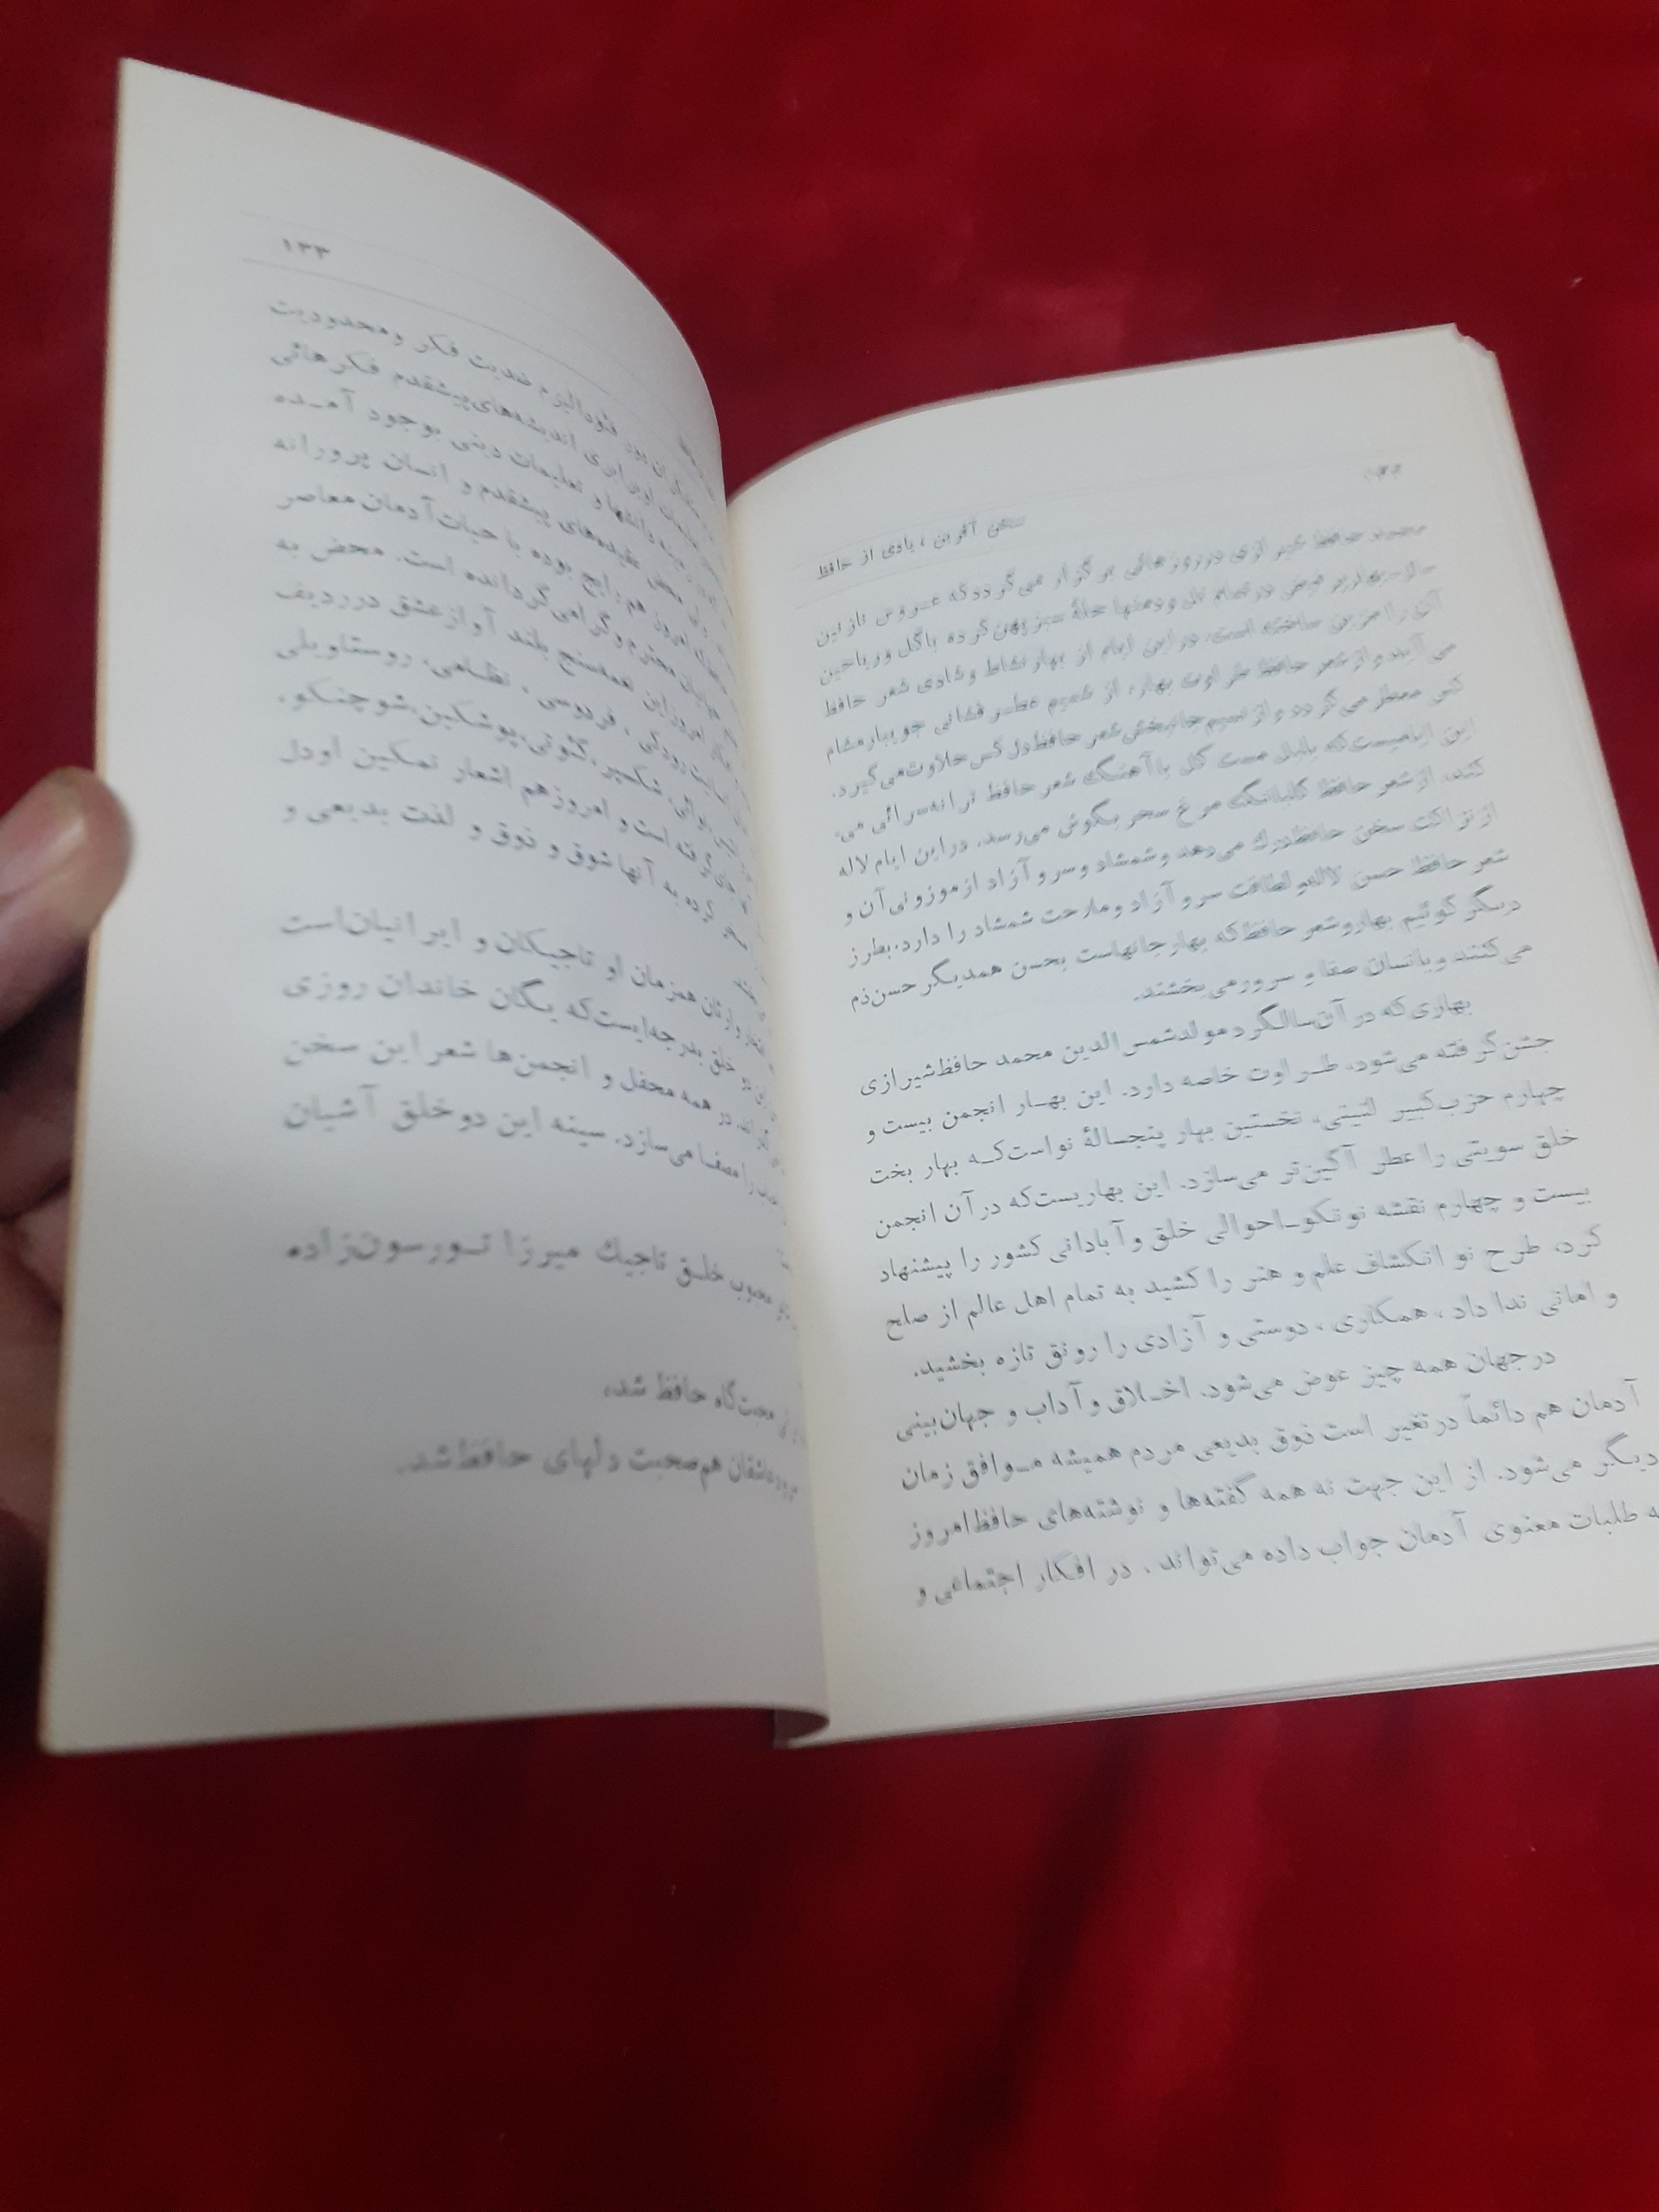 ۱۳۲
سخن آفرین ، یادی از حافظ
محمد حافظ شیرازی در روزهائی برگزار می‌گردد که عـروس نازنین
در تمام تل و دمنها حلهٔ سبز پهن کرده با گل و ریاحین
آن را مزین ساخته است. در این ایام از بهار نشاط و شادی شعر حافظ
می‌آید و از شعر حافظ طراوت بهار، از شمیم عطـر فشانی جویبار مشام
کس معطر می‌گردد و از نسیم جانبخش شعر حافظ دل کس حلاوت می‌گیرد.
این ایامیست که بلبل مست گل با آهنگ شعر حافظ ترانه‌سرائی می‌
کند، از شعر حافظ گلبانگ مرغ سحر بگوش می‌رسد. در این ایام لاله
از نزاکت سخن حافظ درک می‌دهد و شمشاد و سرو آزاد از موزونی آن و
شعر حافظ حسن لاله و لطافت سرو آزاد و ملاحت شمشاد را دارد. بطرز
دیگر گوئیم بهار و شعر حافظ که بهار جانهاست بحسن همدیگر حسن ذم
می‌کنند و بانسان صفا و سرور می‌بخشند.
بهاری که در آن سالگرد مولد شمس الدین محمد حافظ شیرازی
جشن گرفته می‌شود، طـراوت خاصه دارد. این بهـار انجمن بیست و
چهارم حزب کبیر لنینی، نخستین بهار پنجسالهٔ نو است کـه بهار بخت
خلق سویتی را عطر آگین‌تر می‌سازد. این بهاریست که در آن انجمن
بیست و چهارم نقشه نو نکو-احوالی خلق و آبادانی کشور را پیشنهاد
کرد، طرح نو انکشاف علم و هنر را کشید به تمام اهل عالم از صلح
و امانی ندا داد ، همکاری ، دوستی و آزادی را رونق تازه بخشید.
در جهان همه چیز عوض می‌شود. اخـلاق و آداب و جهان‌بینی
آدمان هم دائماً در تغیر است ذوق بدیعی مردم همیشه مـوافق زمان
دیگر می‌شود. از این جهت نه همه گفته‌ها و نوشته‌های حافظ امروز
طلبات معنوی آدمان جواب داده می‌تواند . در افکار اجتماعی و
۱۳۳
دور فئودالیزم ضدیت فکر و محدودیت
اندیشه‌های پیشقدم فکرهائی
و تعلیمات دینی بوجود آمـده
محض عقیده‌های پیشقدم و انسان پرورانه
امروز هم رایج بوده با حیات آدمان معاصر
جهانیان محترم و گرامی گردانده است. محض به
امروز این همه سنج بلند آواز عشق در ردیف
رودکی ، فردوسی ، نظامی، روستاویلی
نوائی، شکسپیر، گئوتی، پوشکین، شوچنکو.
جای گرفته است و امروز هم اشعار نمکین او دل
کرده به آنها شوق و ذوق و لذت بدیعی و
وارثان همزمان او تاجیکان و ایرانیان است
دو خلق بدرجه‌ایست که یگان خاندان روزی
در همه محفل و انجمن‌ها شعر این سخن
را مصفا می‌سازد. سینه این دو خلق آشیان
محبوب خلـق تاجیک میرزا تـورسون‌زاده
محبت‌گاه حافظ شد،
عاشقان هم‌صحبت دلهای حافظ شد.